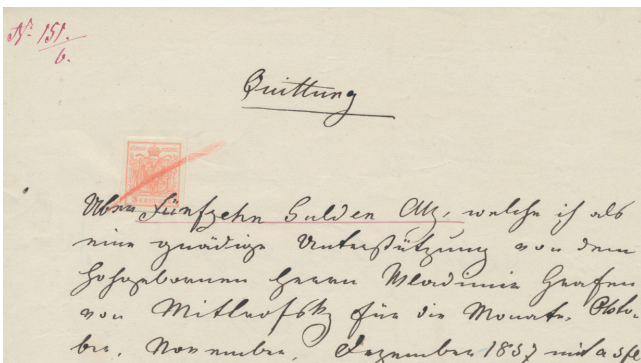 Nº 151.
6.
Quittung
Über Fünfzehn Gulden CMz. welche ich als
eine gnädige Unterstützung von dem
hochgebornen Herrn Wladimir Grafen
von Mittrofsky für die Monate, Octo-
ber, November, Dezember 1857 mit a 5 f